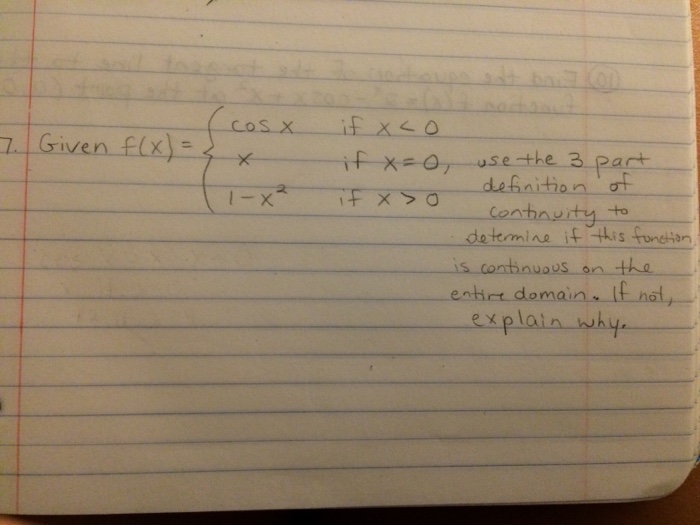 7. Given f(x) = { cos x if x < 0
x if x = 0, use the 3 part
definition of
1-x² if x > 0
continuity to
determine if this function
is continuous on the
entire domain. If not,
explain why.